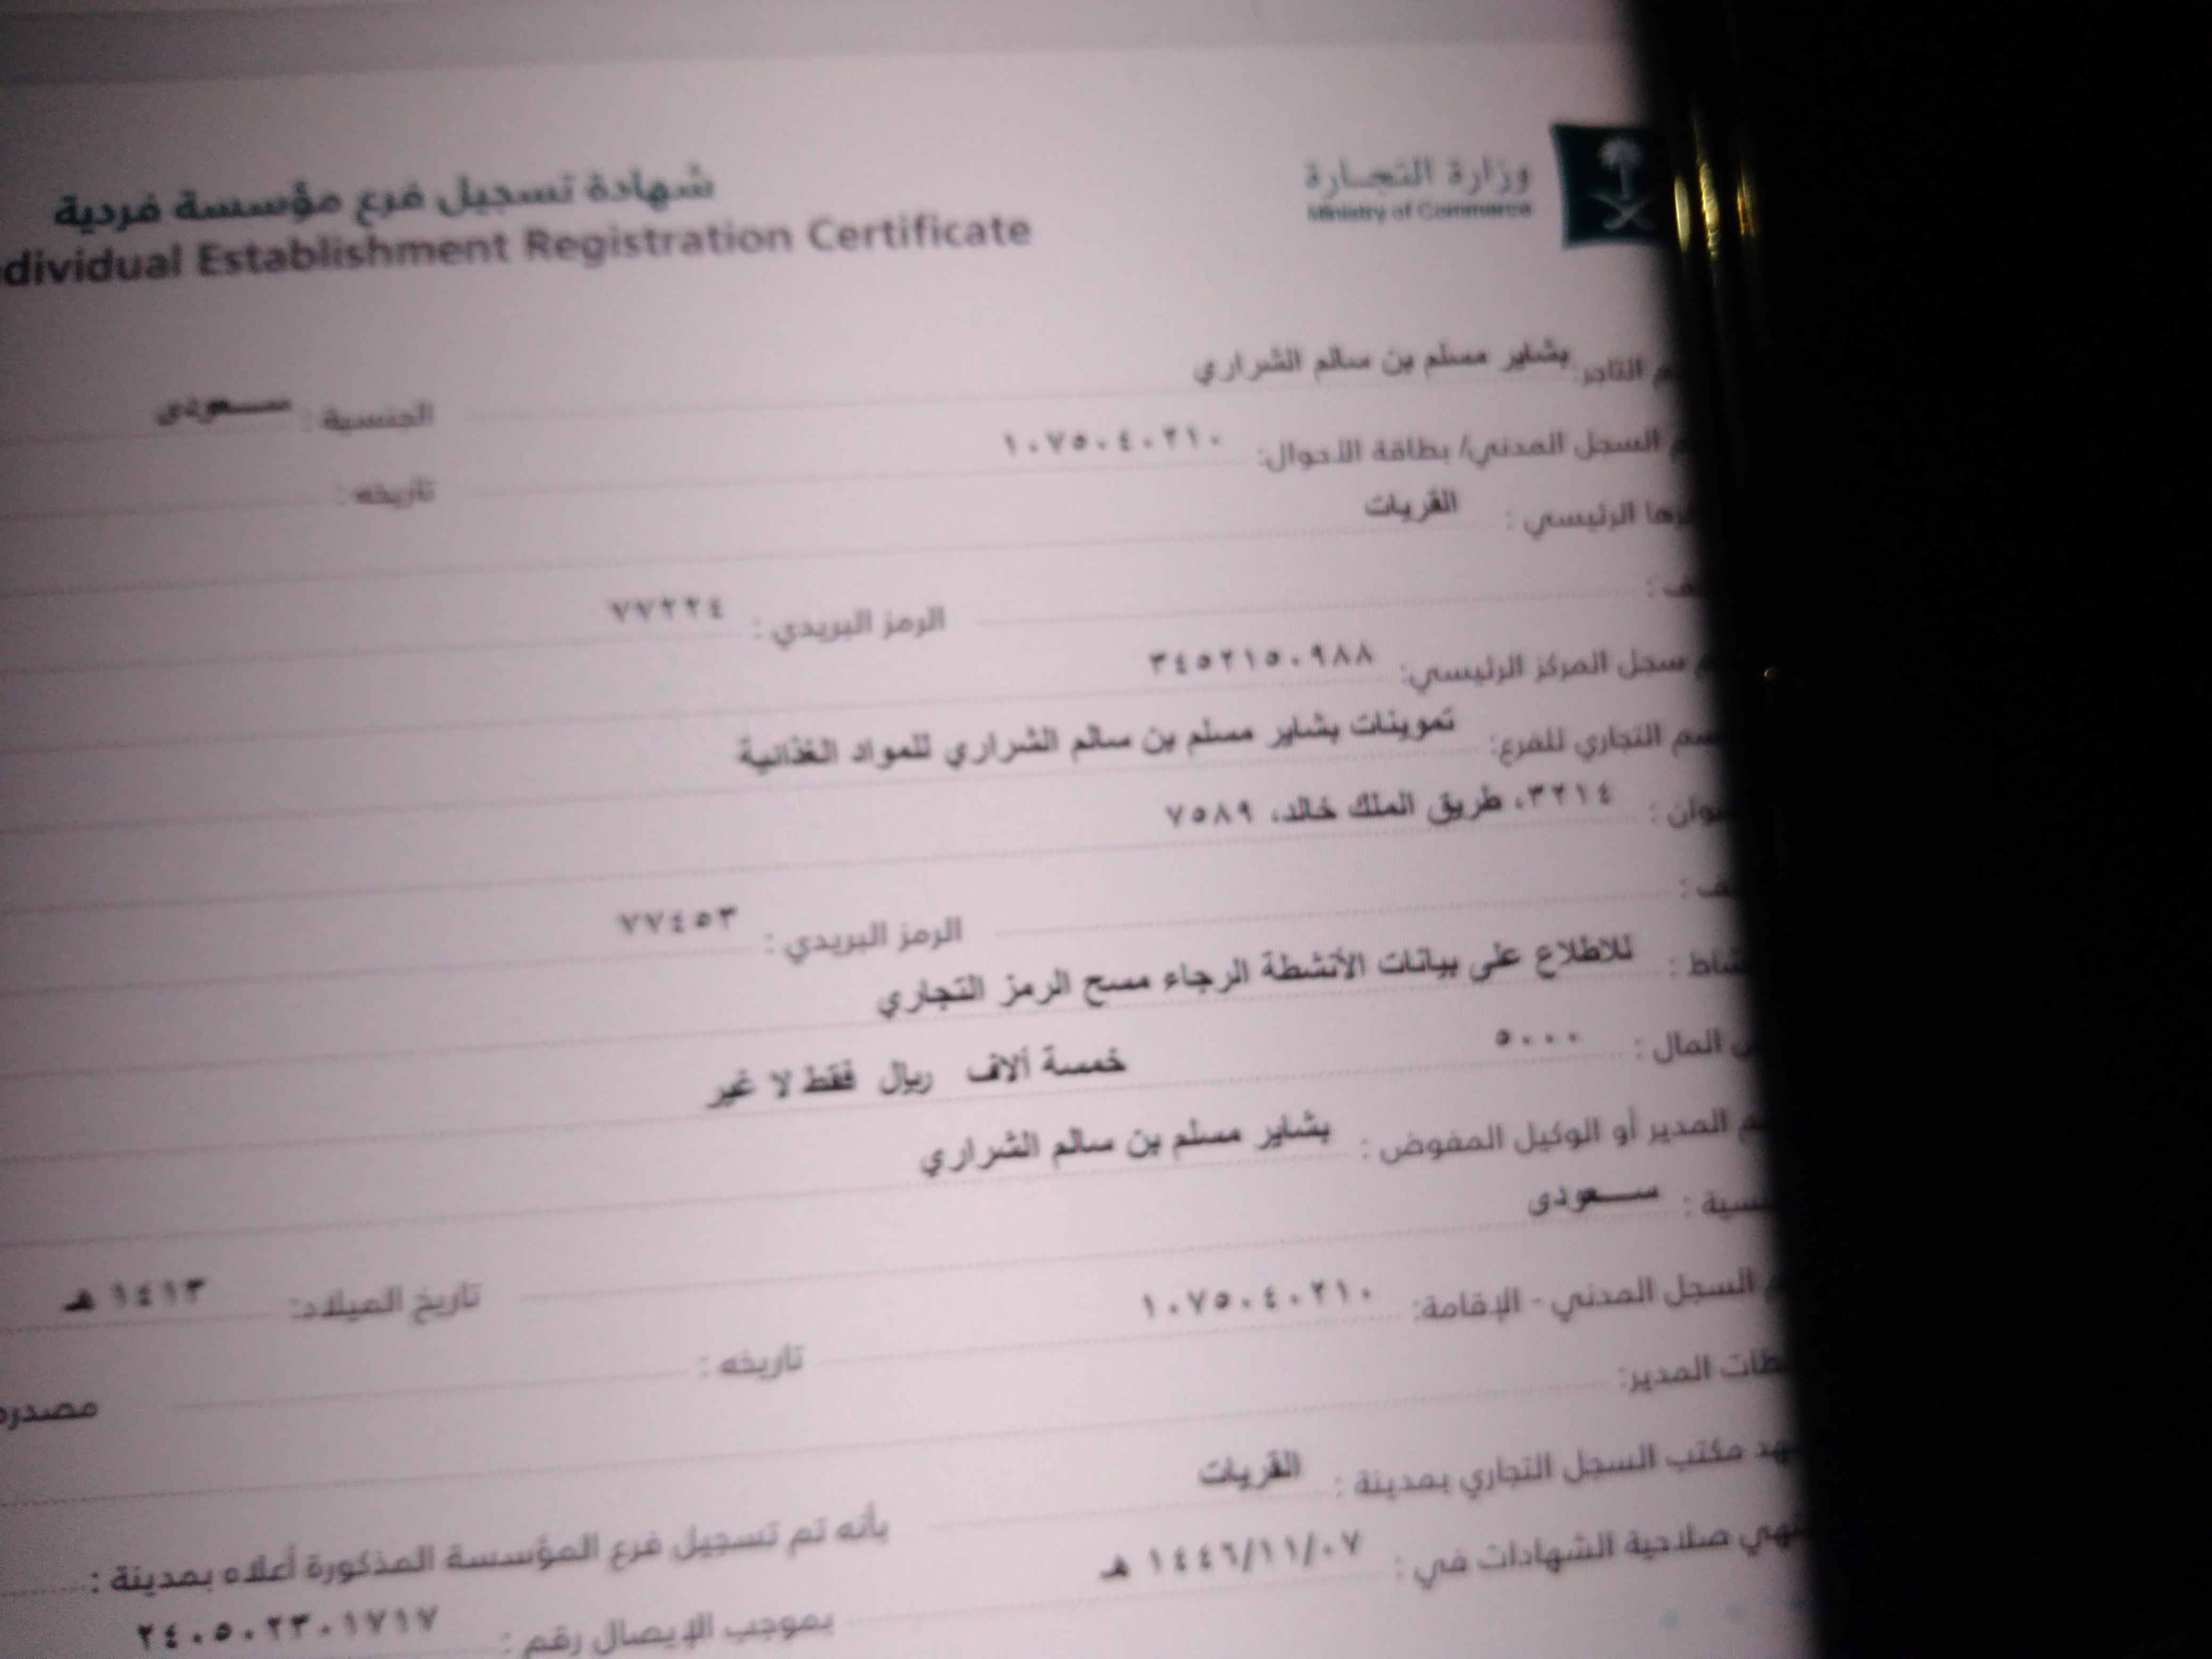 وزارة التجارة
Ministry of Commerce
شهادة تسجيل فرع مؤسسة فردية
Individual Establishment Registration Certificate
التاجر: بشاير مسلم بن سالم الشراري الجنسية : سعودى
السجل المدني/ بطاقة الأحوال: ١٠٧٥٠٤٠٢١٠ تاريخه :
الرئيسي : القريات
الرمز البريدي : ٧٧٢٢٤
سجل المركز الرئيسي: ٣٤٥٢١٥٠٩٨٨
التجاري للفرع: تموينات بشاير مسلم بن سالم الشراري للمواد الغذائية
٣٢١٤، طريق الملك خالد، ٧٥٨٩
الرمز البريدي : ٧٧٤٥٣
للاطلاع على بيانات الأنشطة الرجاء مسح الرمز التجاري
المال : ٥٠٠٠ خمسة ألاف ريال فقط لا غير
المدير أو الوكيل المفوض : بشاير مسلم بن سالم الشراري
سعودى
السجل المدني - الإقامة: ١٠٧٥٠٤٠٢١٠ تاريخ الميلاد: ١٤١٣ هـ
المدير: تاريخه : مصدره
مكتب السجل التجاري بمدينة : القريات بأنه تم تسجيل فرع المؤسسة المذكورة أعلاه بمدينة :
صلاحية الشهادات في : ١٤٤٦/١١/٠٧ هـ بموجب الإيصال رقم : ٢٤٠٥٠٢٣٠١٧١٧